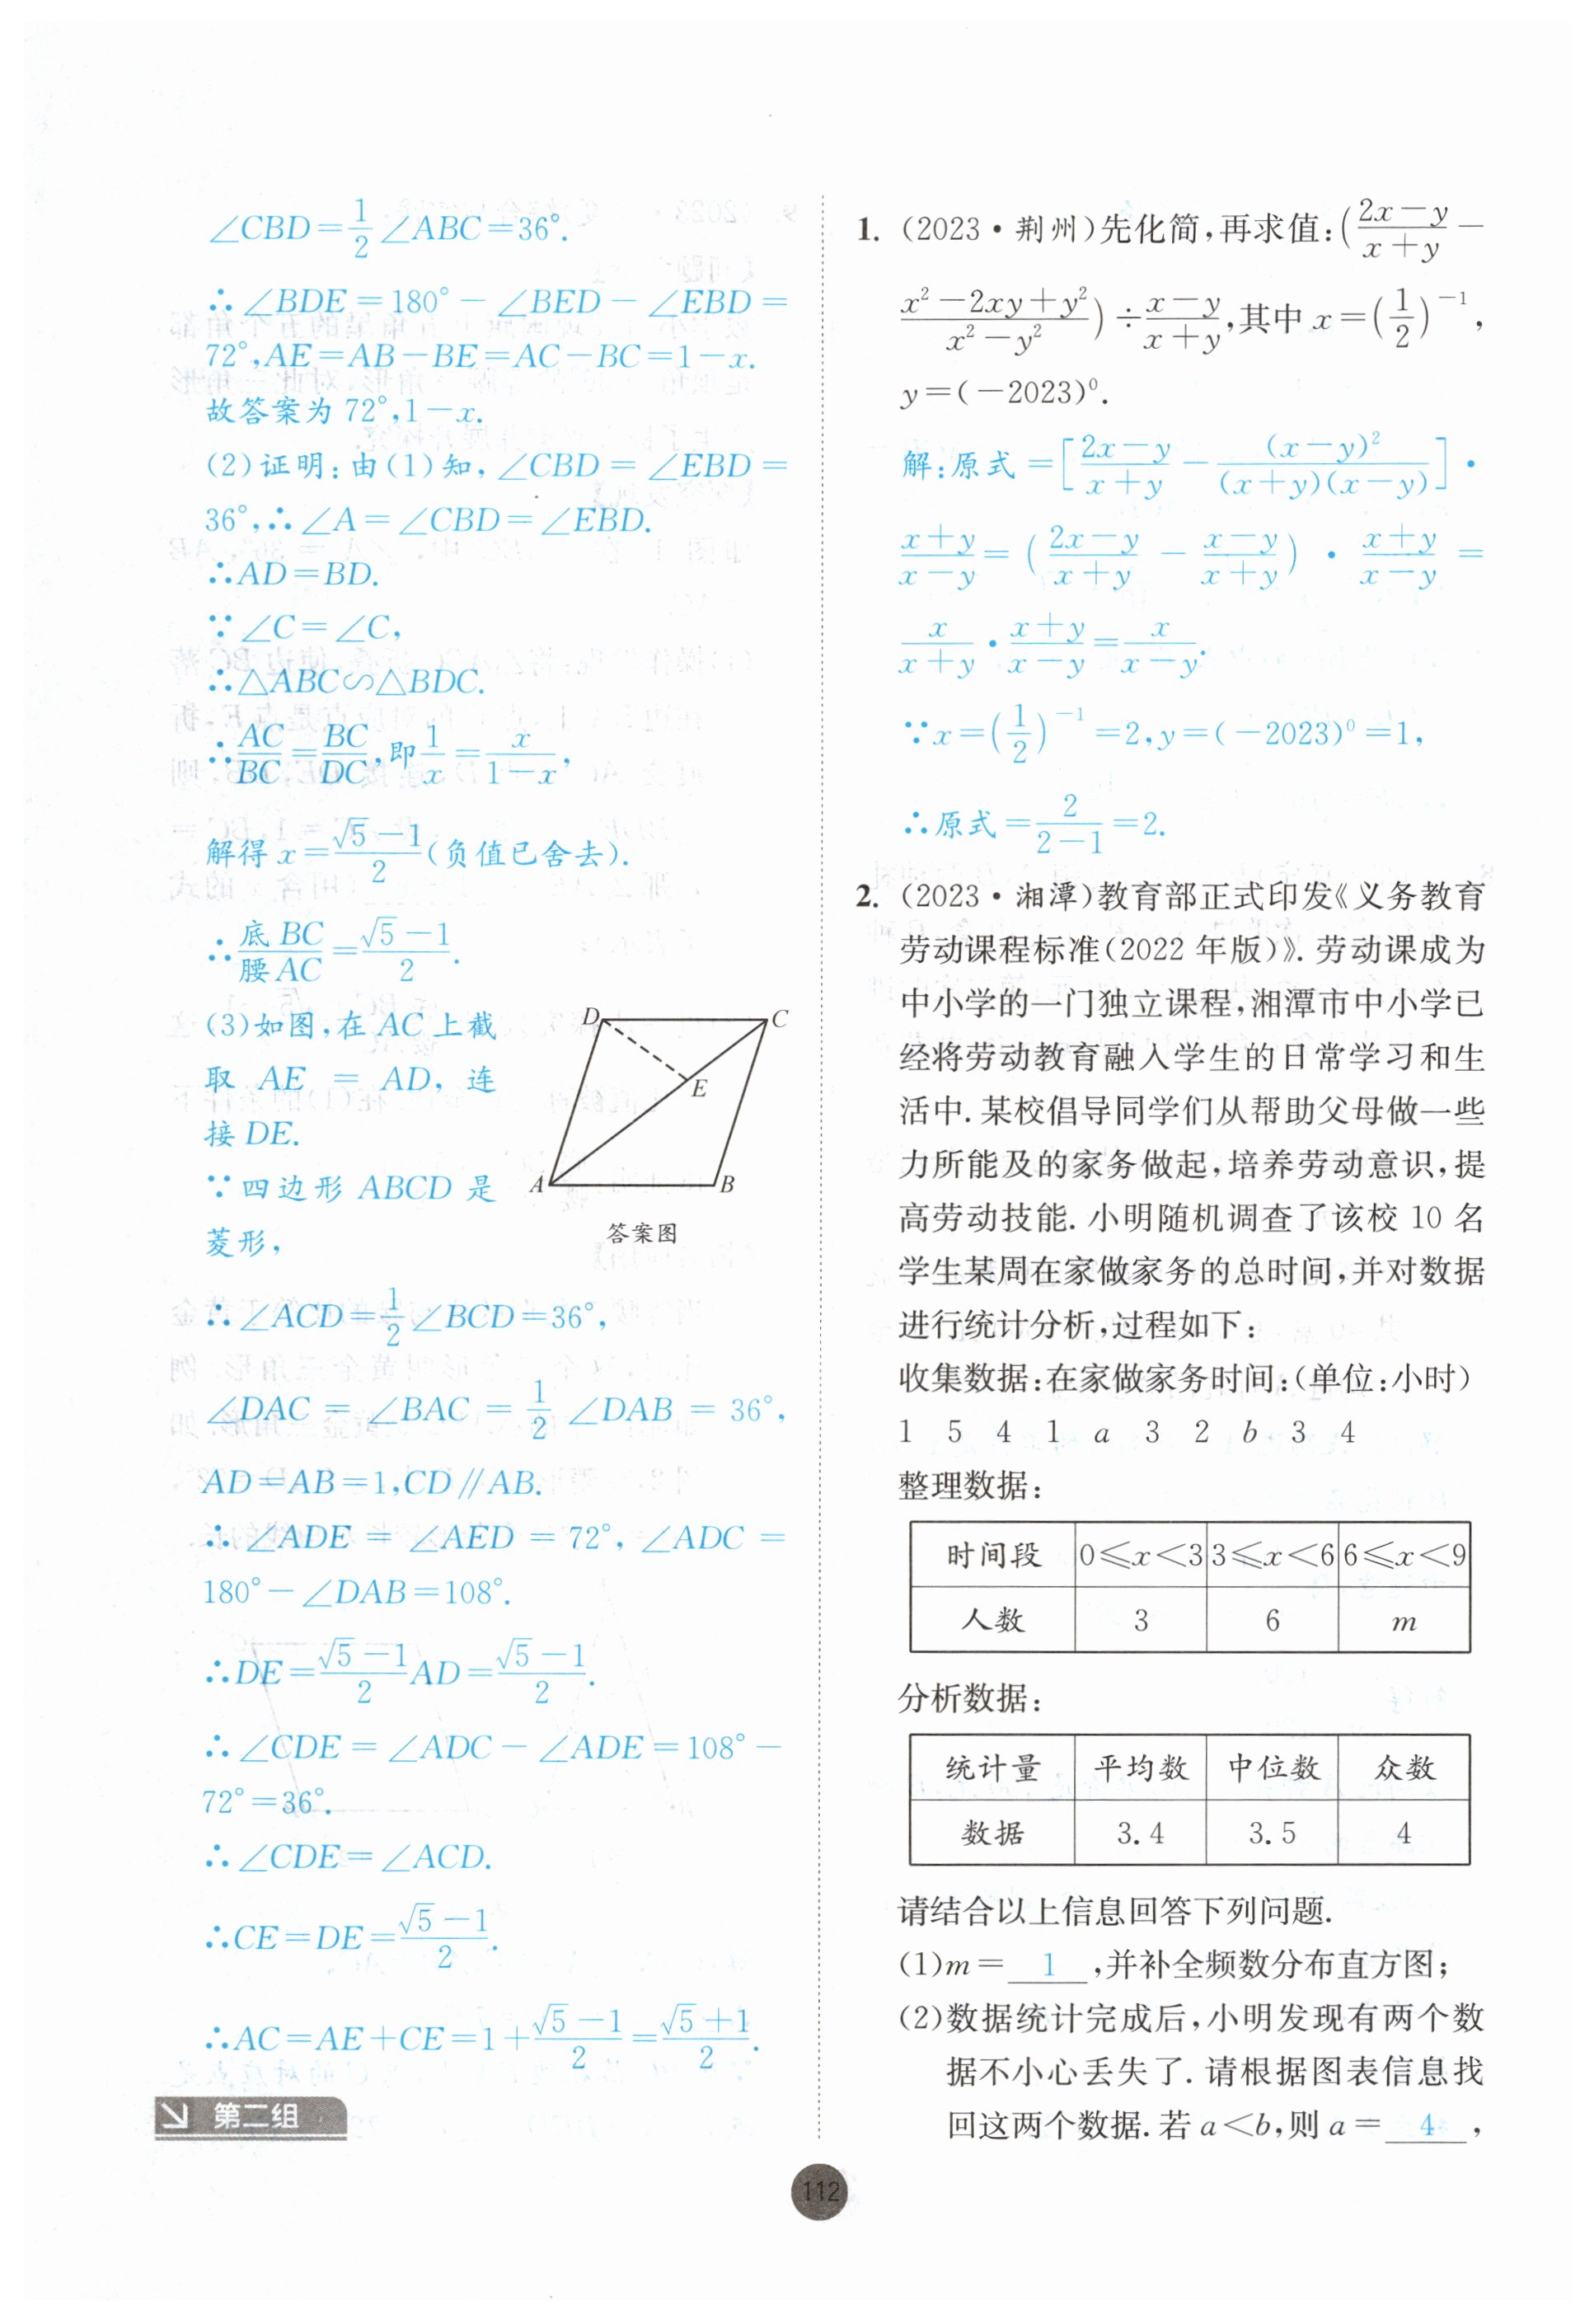 ∠CBD=1/2∠ABC=36°.
∴∠BDE=180°-∠BED-∠EBD=
72°,AE=AB-BE=AC-BC=1-x.
故答案为72°,1-x.
(2)证明:由(1)知,∠CBD=∠EBD=
36°,∴∠A=∠CBD=∠EBD.
∴AD=BD.
∵∠C=∠C,
∴△ABC∽△BDC.
∴AC/BC=BC/DC,即1/x=x/(1-x),
解得x=(√5-1)/2(负值已舍去).
∴底BC/腰AC=(√5-1)/2.
(3)如图,在AC上截
取AE=AD,连
接DE.
∵四边形ABCD是
菱形,
D C
E
A B
答案图
∴∠ACD=1/2∠BCD=36°,
∠DAC=∠BAC=1/2∠DAB=36°,
AD=AB=1,CD∥AB.
∴∠ADE=∠AED=72°,∠ADC=
180°-∠DAB=108°.
∴DE=(√5-1)/2AD=(√5-1)/2.
∴∠CDE=∠ADC-∠ADE=108°-
72°=36°.
∴∠CDE=∠ACD.
∴CE=DE=(√5-1)/2.
∴AC=AE+CE=1+(√5-1)/2=(√5+1)/2.
第二组
1.(2023·荆州)先化简,再求值:((2x-y)/(x+y)-
(x²-2xy+y²)/(x²-y²))÷(x-y)/(x+y),其中x=(1/2)⁻¹,
y=(-2023)⁰.
解:原式=[(2x-y)/(x+y)-(x-y)²/((x+y)(x-y))]·
(x+y)/(x-y)=((2x-y)/(x+y)-(x-y)/(x+y))·(x+y)/(x-y)=
x/(x+y)·(x+y)/(x-y)=x/(x-y).
∵x=(1/2)⁻¹=2,y=(-2023)⁰=1,
∴原式=2/(2-1)=2.
2.(2023·湘潭)教育部正式印发《义务教育
劳动课程标准(2022年版)》.劳动课成为
中小学的一门独立课程,湘潭市中小学已
经将劳动教育融入学生的日常学习和生
活中.某校倡导同学们从帮助父母做一些
力所能及的家务做起,培养劳动意识,提
高劳动技能.小明随机调查了该校10名
学生某周在家做家务的总时间,并对数据
进行统计分析,过程如下:
收集数据:在家做家务时间:(单位:小时)
1 5 4 1 a 3 2 b 3 4
整理数据:
时间段 0≤x<3 3≤x<6 6≤x<9
人数 3 6 m
分析数据:
统计量 平均数 中位数 众数
数据 3.4 3.5 4
请结合以上信息回答下列问题.
(1)m=1,并补全频数分布直方图;
(2)数据统计完成后,小明发现有两个数
据不小心丢失了.请根据图表信息找
回这两个数据.若a<b,则a=4,
112